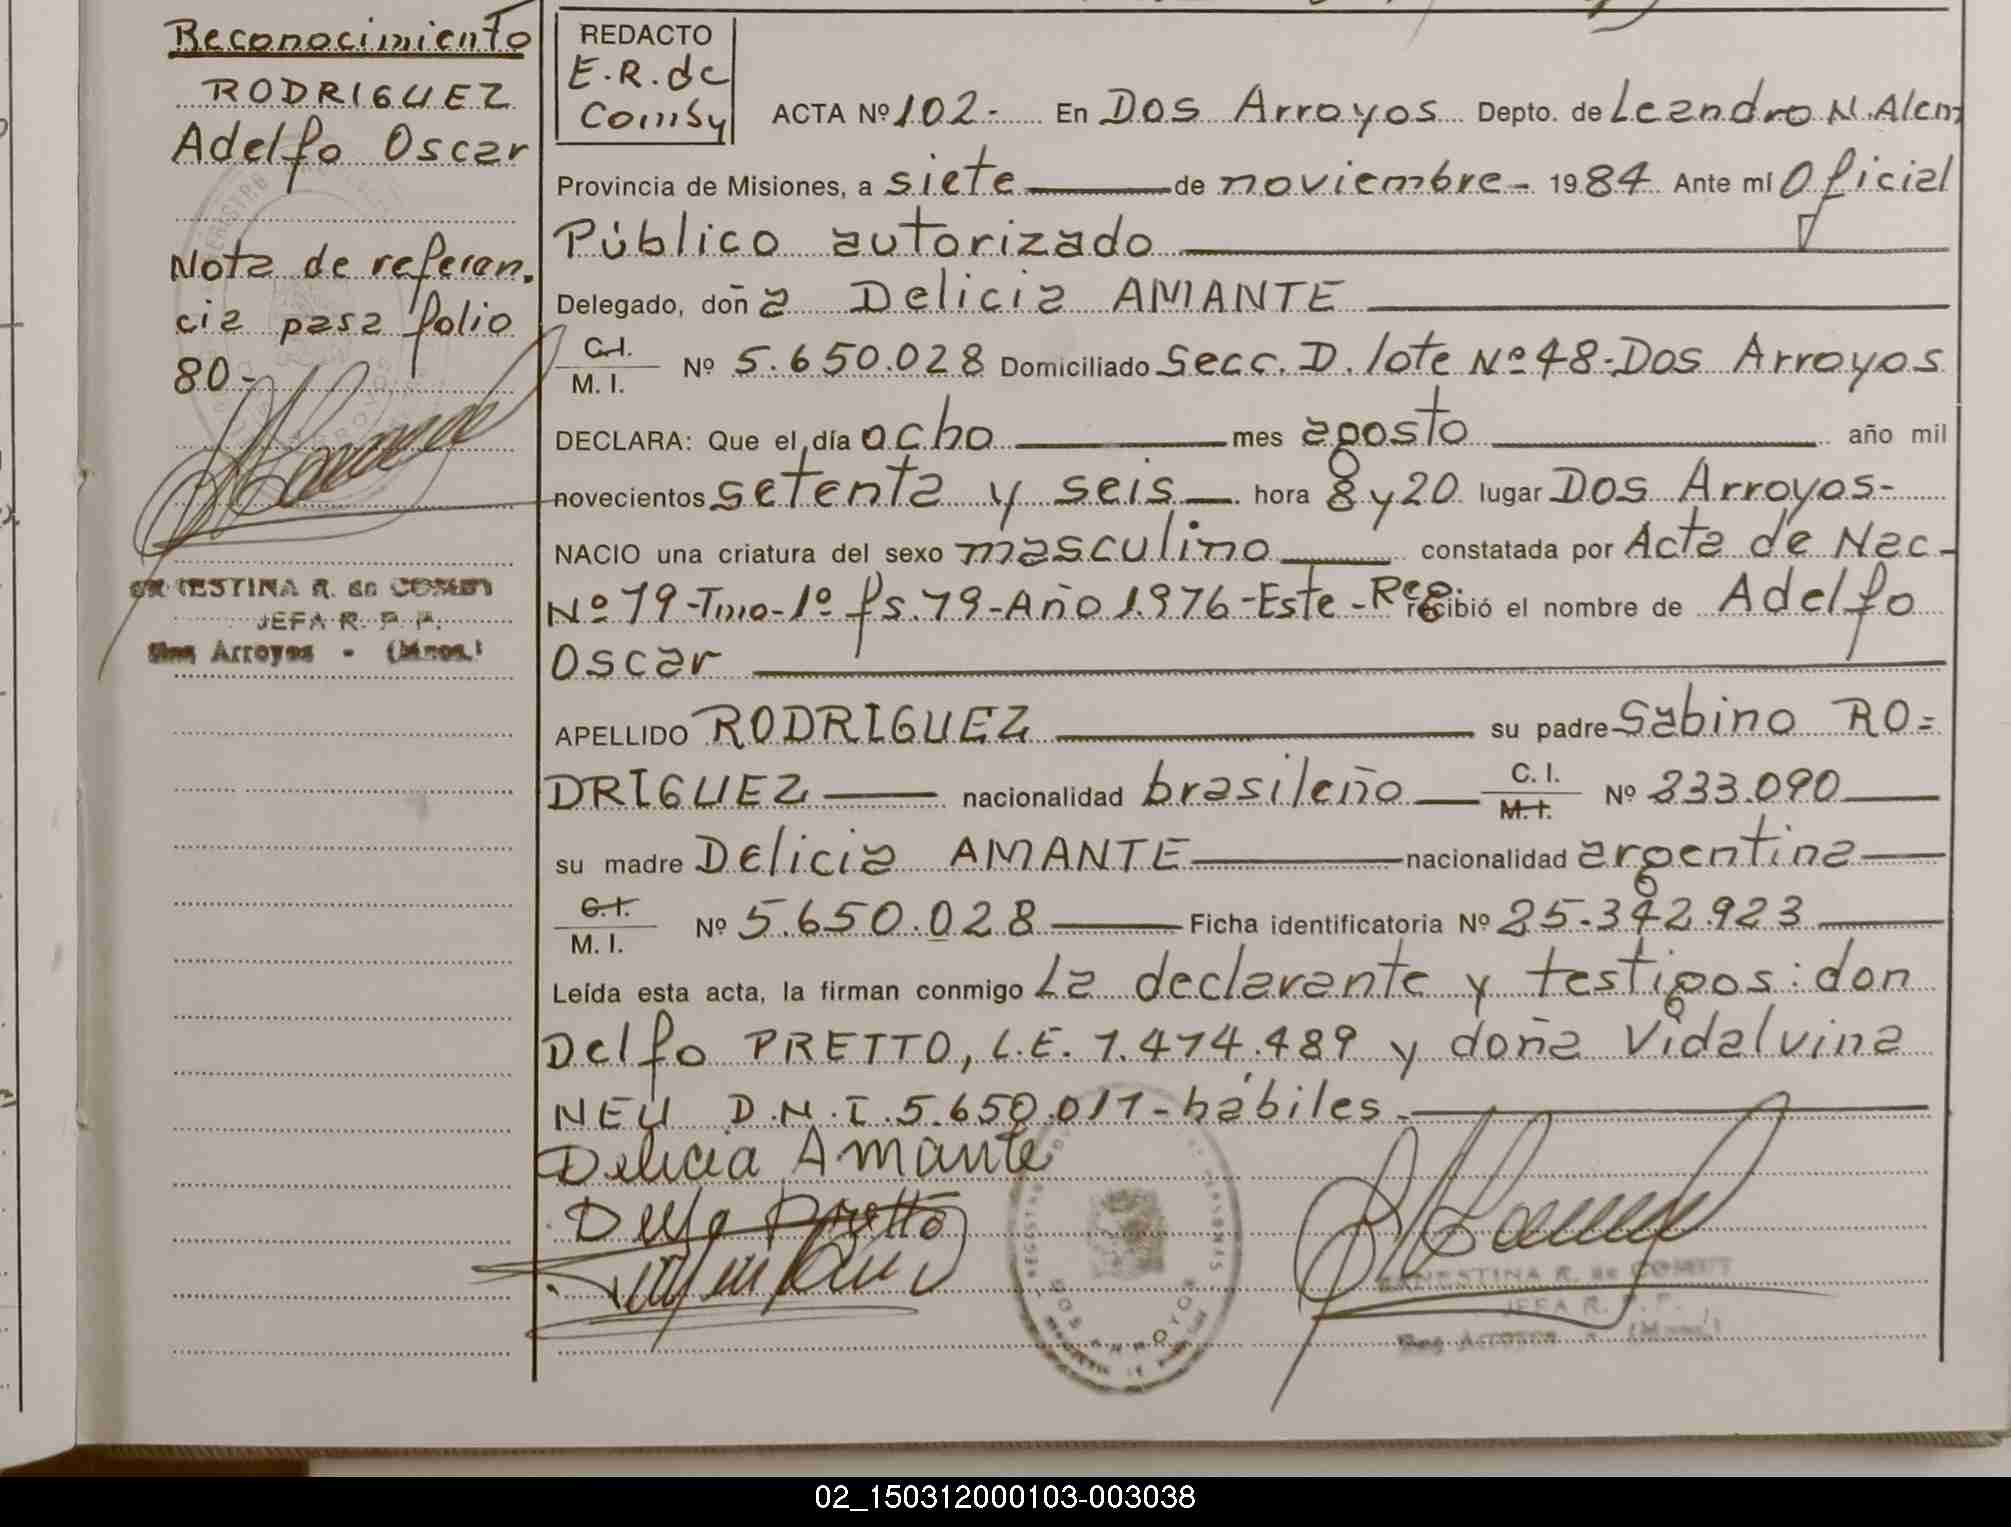 Reconocimiento
RODRIGUEZ
Adelfo Oscar
Nota de referen.
cia pasa folio
80-
JEFA R. P. P.
Dos Arroyos - (Mnes.)
REDACTO
E.R.de
Comby
ACTA Nº 102.- En Dos Arroyos Depto. de Leandro N. Alem
Provincia de Misiones, a siete de noviembre- 1984 Ante mí Oficial
Público autorizado
Delegado, doña Delicia AMANTE
C.I. M. I. Nº 5.650.028 Domiciliado Secc. D. lote Nº 48-Dos Arroyos
DECLARA: Que el día ocho mes agosto año mil
novecientos setenta y seis hora 8 y 20 lugar Dos Arroyos-
NACIO una criatura del sexo masculino constatada por Acta de Nac-
Nº 79-Tmo-1º fs. 79-Año 1.976-Este-Reg. recibió el nombre de Adelfo
Oscar
APELLIDO RODRIGUEZ su padre Sabino RO=
DRIGUEZ nacionalidad brasileño C. I. M. I. Nº 333.090
su madre Delicia AMANTE nacionalidad argentina
C. I. M. I. Nº 5.650.028 Ficha identificatoria Nº 25.392.923
Leída esta acta, la firman conmigo La declarante y testigos: don
Delfo PRETTO, L.E. 7.474.489 y doña Vidalvina
NEU D.N.I. 5.650.017-hábiles.-
Delicia Amante
Delfo Pretto
ERNESTINA R. de COMBY
JEFA R. P. P.
Dos Arroyos - (Mnes.)
DOS ARROYOS
02_150312000103-003038